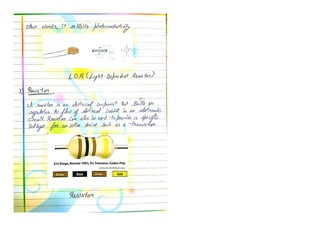 Other words, it exhibits photoconductivity.
LDR (Light Dependent Resistor)
Resistor
A resistor is an electrical component that limits or
regulates the flow of electrical current in an electronic
circuit. Resistors can also be used to provide a specific
voltage for an active device such as a transistor.
Resistor